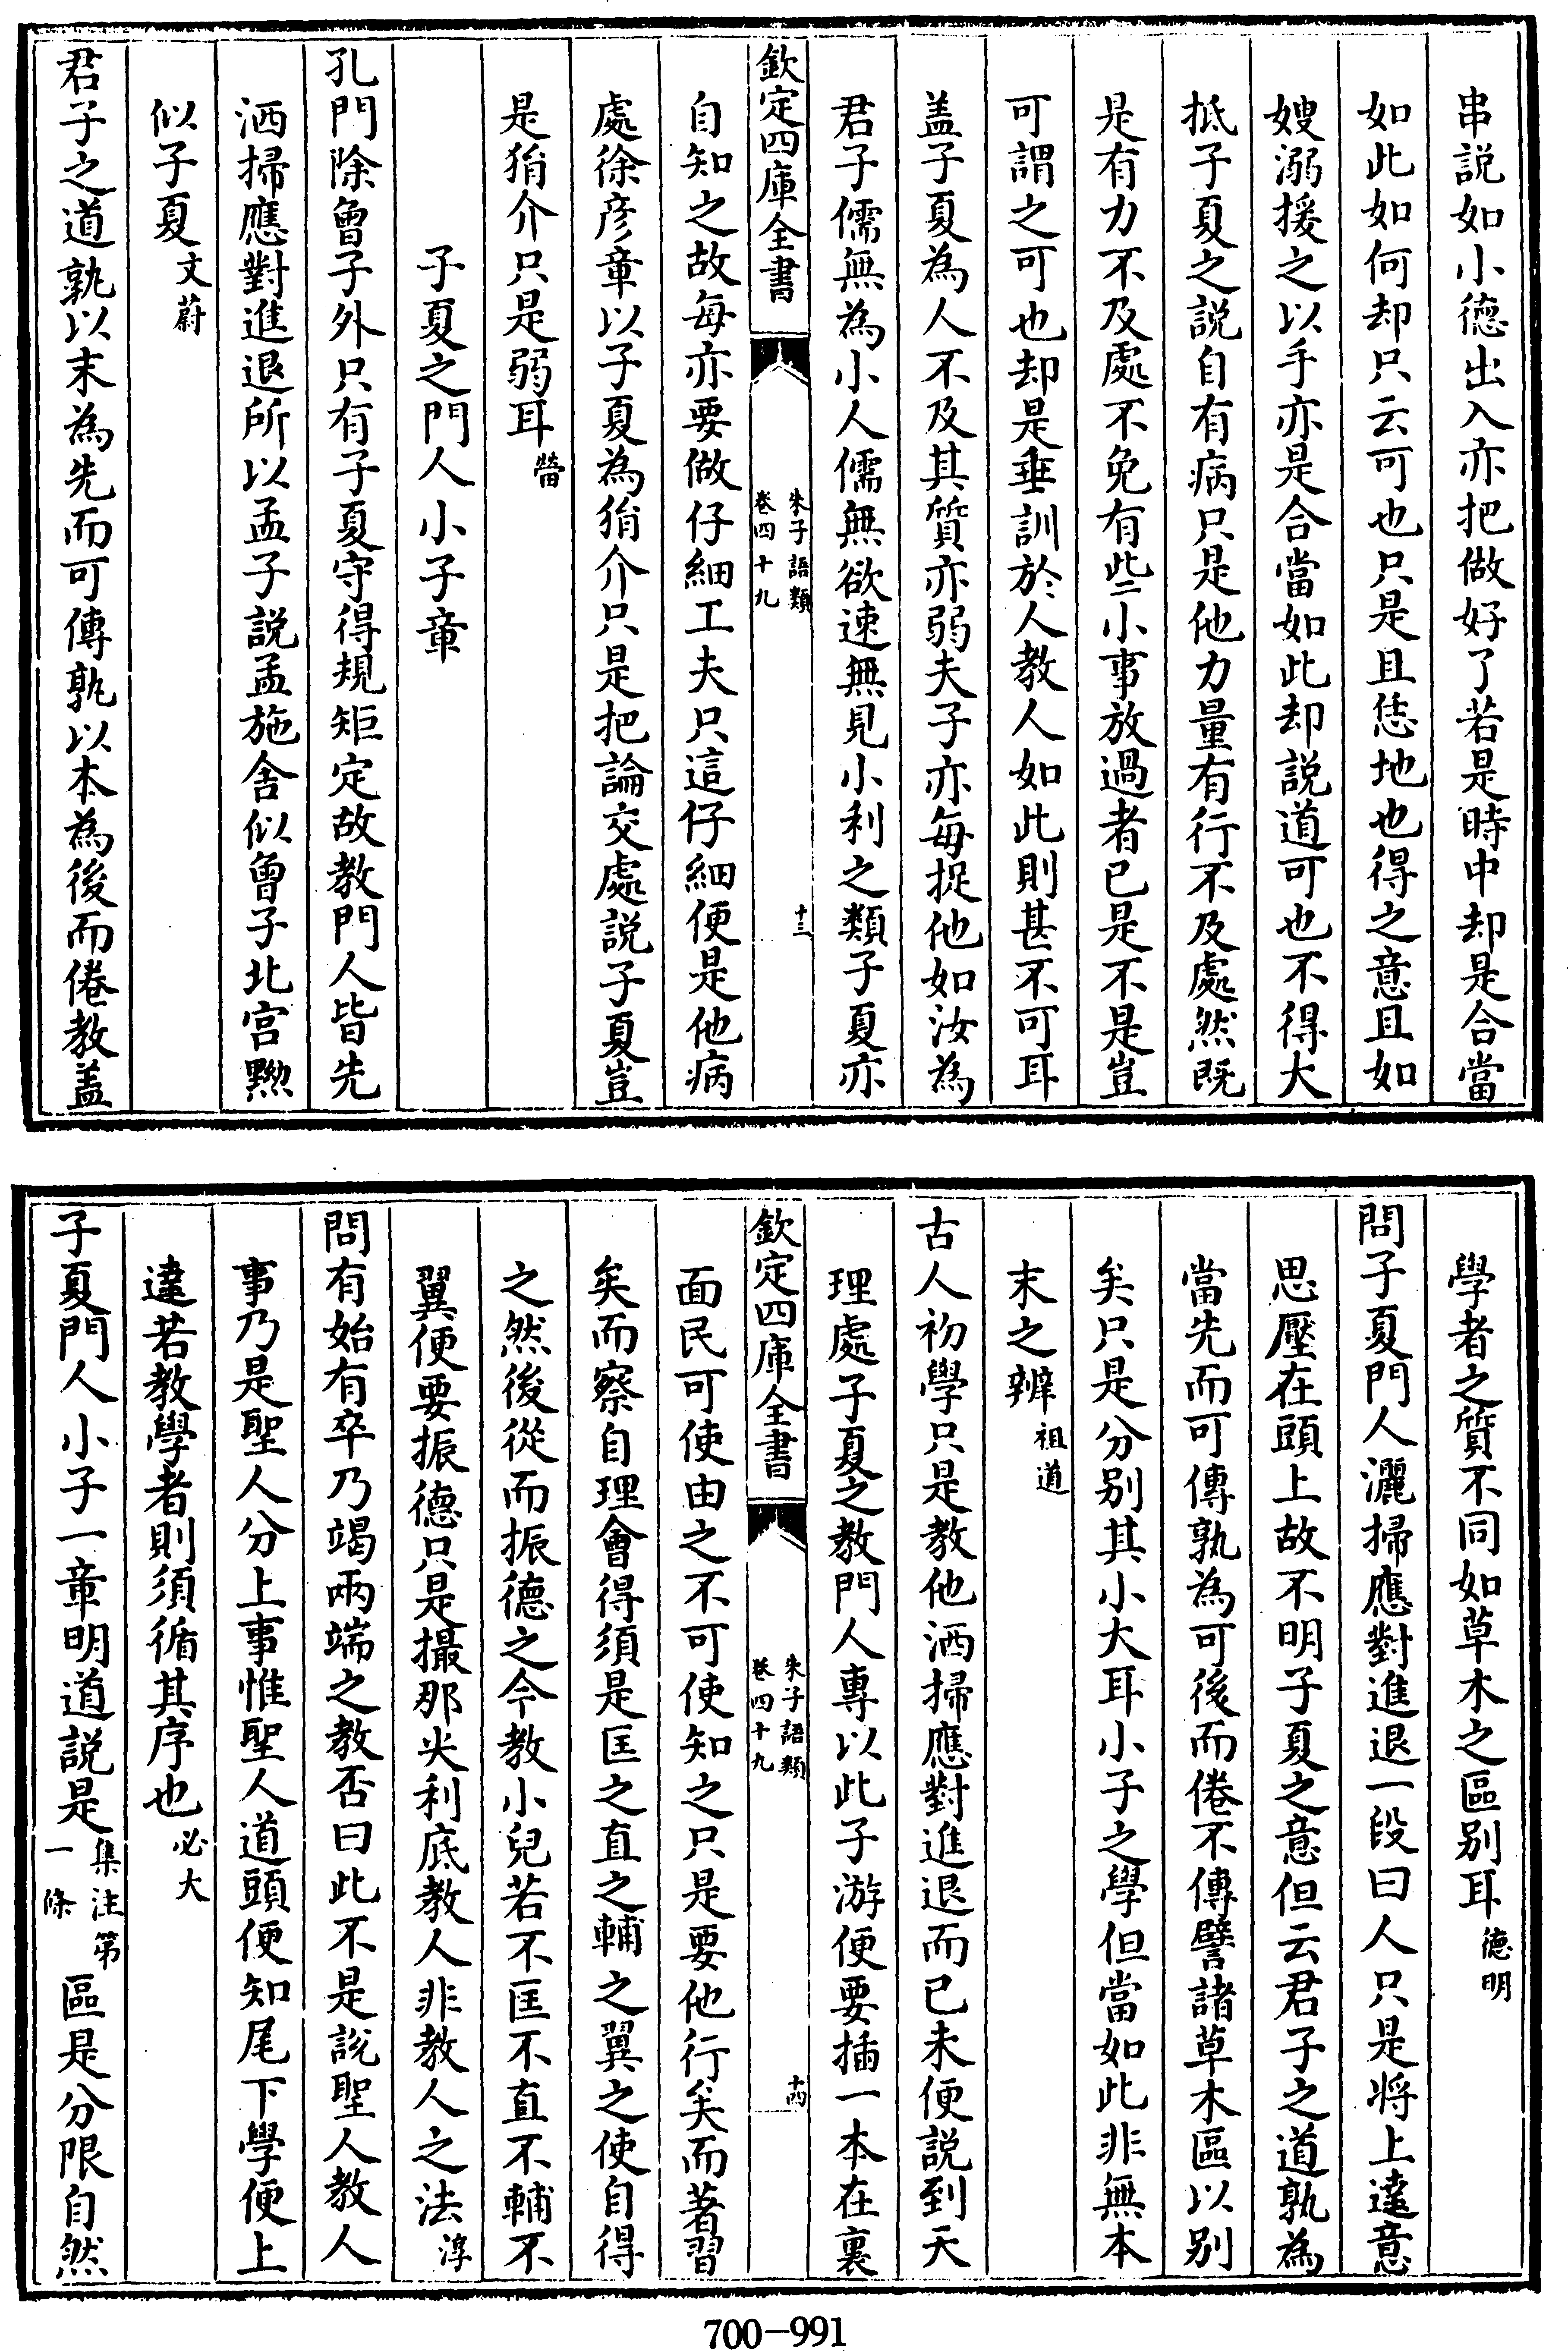 串說如小德出入亦把做好了若是時中却是合當
如此如何却只云可也只是且恁地也得之意且如
嫂溺援之以手亦是合當如此却說道可也不得大
抵子夏之說自有病只是他力量有行不及處然既
是有力不及處不免有些小事放過者已是不是豈
可謂之可也却是垂訓於人教人如此則甚不可耳
盖子夏為人不及其質亦弱夫子亦每捉他如汝為
君子儒無為小人儒無欲速無見小利之類子夏亦
欽定四庫全書
朱子語類
卷四十九
十三
自知之故每亦要做仔細工夫只這仔細便是他病
處徐彦章以子夏為狷介只是把論交處說子夏豈
是狷介只是弱耳 㽦
子夏之門人小子章
孔門除曾子外只有子夏守得規矩定故教門人皆先
洒掃應對進退所以孟子說孟施舍似曾子北宮黝
似子夏 文蔚
君子之道孰以末為先而可傳孰以本為後而倦教盖
學者之質不同如草木之區别耳 德明
問子夏門人灑掃應對進退一段曰人只是將上達意
思壓在頭上故不明子夏之意但云君子之道孰為
當先而可傳孰為可後而倦不傳譬諸草木區以别
矣只是分别其小大耳小子之學但當如此非無本
末之辨 祖道
古人初學只是教他洒掃應對進退而已未便說到天
理處子夏之教門人專以此子游便要插一本在裏
欽定四庫全書
朱子語類
卷四十九
十四
面民可使由之不可使知之只是要他行矣而著習
矣而察自理會得須是匡之直之輔之翼之使自得
之然後從而振德之今教小兒若不匡不直不輔不
翼便要振德只是撮那尖利底教人非教人之法 淳
問有始有卒乃竭兩端之教否曰此不是說聖人教人
事乃是聖人分上事惟聖人道頭便知尾下學便上
達若教學者則須循其序也 必大
子夏門人小子一章明道說是 集注第一條 區是分限自然
700-991